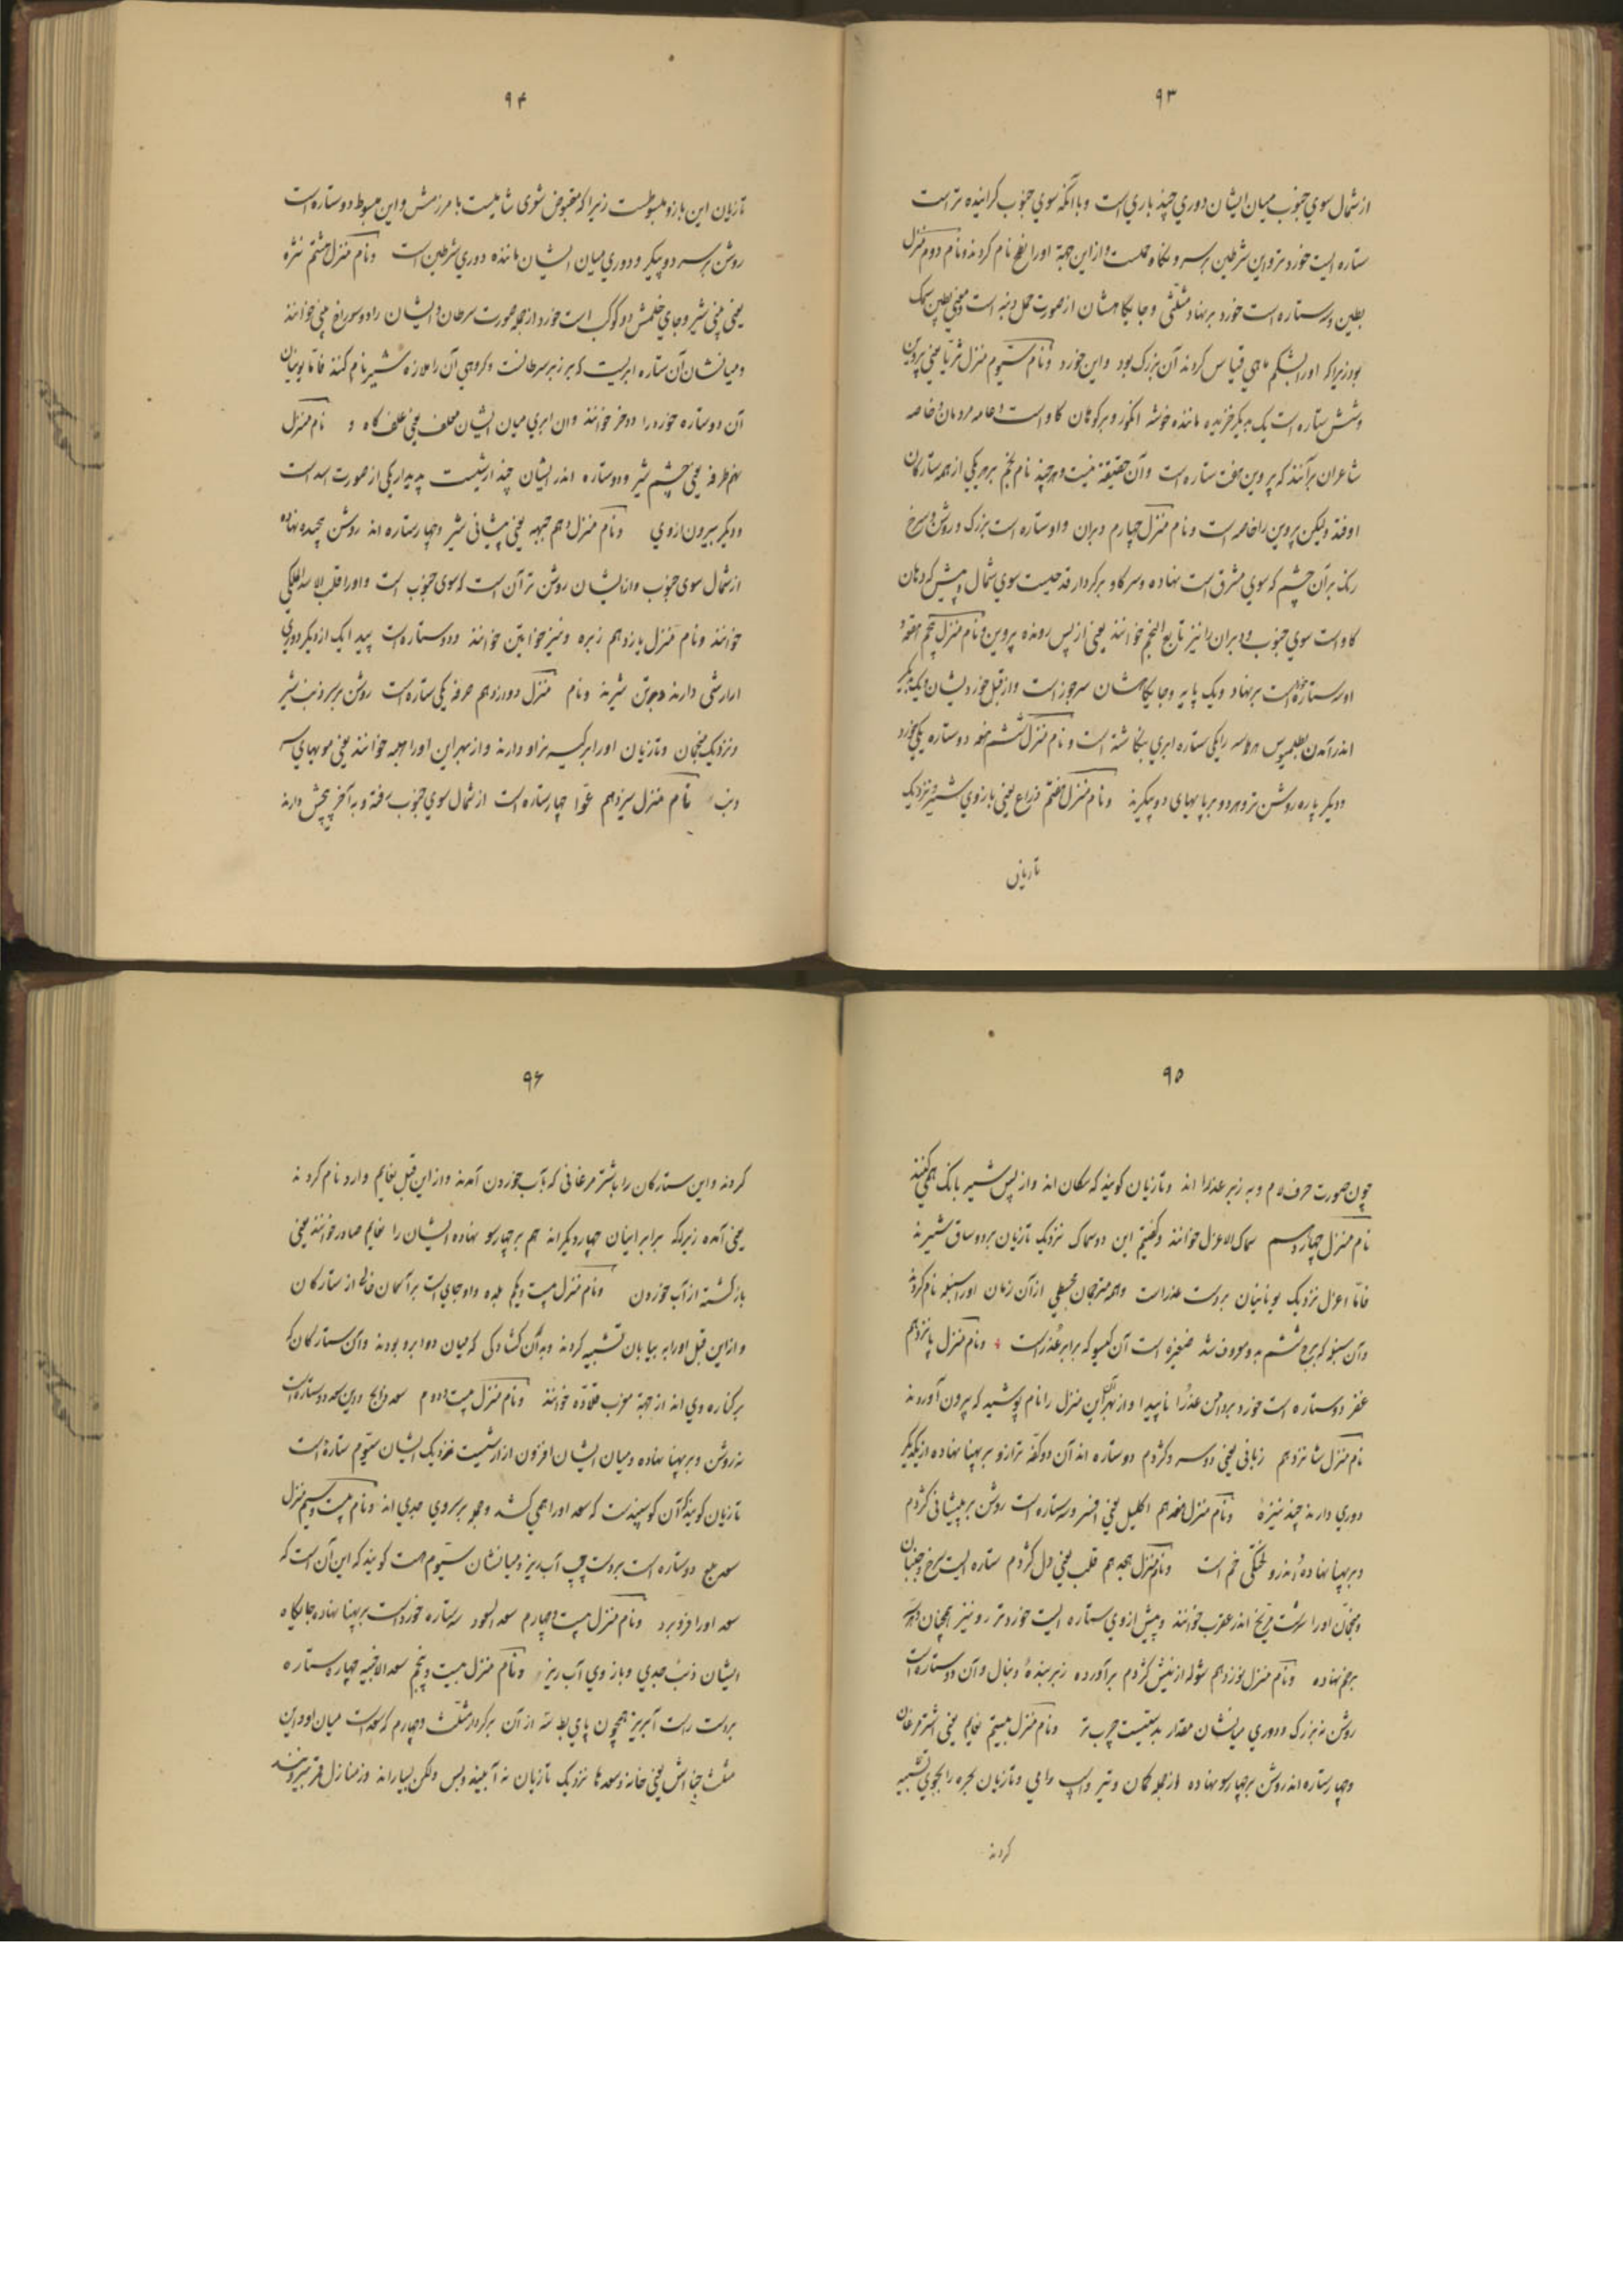 ۹۳
از شمال سوی جنوب میان ایشان دوری چند باری است و با آنکه سوی جنوب گراینده تر است
ستاره ایست خورد تر و این شرطین بر سرو گاه حملست و از این جهة اورا نطح نام کردند و نام دوم منزل
بطین و سه ستاره است خورد بر نهاد مثلثی و جایگاهشان از صورت حمل دنبه است و معنی بطین سبک
بود زیراکه اورا بشکم ماهی قیاس کردند آن بزرگ بود و این خورد و نام سیوم منزل ثریا یعنی پروین
و شش ستاره است یک بدیگر خزیده ماننده خوشه انگور و بر کوهان گاو است و عامه مردمان و خاصه
شاعران برآنند که پروین هفت ستاره است و آن حقیقة نیست و هر چند نام نجم بر هر یکی از همه ستارگان
اوفتد ولیکن پروین را خاصه است و نام منزل چهارم دبران و او ستاره است بزرگ و روشن و سرخ
رنگ بر آن چشم که سوی مشرق است نهاده و سر گاو بر کردار قدحیست سوی شمال و پیش که دهان
گاو است سوی جنوب و دبران را نیز تابع النجم خوانند یعنی از پس رونده پروین و نام منزل پنجم هقعه و
او سه ستاره خورد است بر نهاد دیگ پایه و جایگاهشان سر جوزاست و از قبل خوردیشان و یک بدیگر
اندر آمدن بطلمیوس هر سه را یکی ستاره ابری بنگاشته است و نام منزل ششم هنعه دو ستاره یکی خورد
و دیگر پاره روشن تر و هر دو بر پایهای دو پیکرند و نام منزل هفتم ذراع یعنی بازوی شیر و نزدیک
تازیان
۹۴
تازیان این بازو مبسوطست زیرا که مقبوض شوی شامیست با مرزمش و این مبسوط دو ستاره است
روشن بر سر دو پیکر و دوری میان ایشان ماننده دوری شرطین است و نام منزل هشتم نثره
یعنی بینی شیر و جای خلمش دو کوکب است خورد از جمله صورت سرطان و ایشان را دو سوراخ بینی خوانند
و میانشان آن ستاره ابریست که بر زبر سرطانست و گروهی آن را ملازه شیر نام کنند فاما یونانیان
آن دو ستاره خورد را دو خر خوانند و ان ابری میان ایشان معلف یعنی علف گاه و نام منزل
نهم طرفه یعنی چشم شیر و دو ستاره اند ایشان چند ارشیست پدیدار یکی از صورت اسد است
و دیگر بیرون از وی و نام منزل دهم جبهه یعنی پیشانی شیر و چهار ستاره اند روشن پیچیده نهاده
از شمال سوی جنوب و از ایشان روشن تر آن است که سوی جنوب است و اورا قلب الاسد الملکی
خوانند و نام منزل یازدهم زبره و نیز خراتین خوانند و دو ستاره است پیدا یک از دیگر دوری
ارارشی دارند و بر تن شیرند و نام منزل دوازدهم صرفه یکی ستاره است روشن بر سر ذنب شیر
و نزدیک منجمان و تازیان اورا بر کیسه نر او دارند و از بهر این اورا هلبه خوانند یعنی مویهای سر
دنب نام منزل سیزدهم عوا چهار ستاره است از شمال سوی جنوب رفته و به آخر پیچش دارند
۹۵
چون صورت حرف لام و به زبر عذرا اند و تازیان گویند که سگان اند و از پس شیر بانگ همی کنند
نام منزل چهاردهم سماک الاعزل خوانند و گفتیم این دو سماک نزدیک تازیان بر دو ساق شیرند
فاما اعزل نزدیک یونانیان بر دست عذراست و همه مترجمان مجسطی از آن زمان اورا سنبله نام کردند
و آن سنبله که برج ششم بدو معروف شد ضفیره است آن گیسو که برابر عذراست و نام منزل پانزدهم
غفر دو ستاره است خورد بر دامن عذرا ناپیدا و از بهر آنک این منزل را نام پوشید که بیرون آوردند
نام منزل شانزدهم زبانی یعنی دو سر و کژدم دو ستاره اند آن دو کفه ترازو بر پهنا نهاده از یکدیگر
دوری دارند چند نیزه و نام منزل هفدهم اکلیل یعنی افسر و سه ستاره است روشن بر پیشانی کژدم
و بر پهنا نهاده و اندرو لختکی خم است و نام منزل هجدهم قلب یعنی دل کژدم ستاره ایست سرخ و جنبان
و منجمان اورا سرشت مریخ اندر عقرب خوانند و پیش از وی ستاره ایست خورد تر رو نیز همچنان و هر سه
بر خم نهاده و نام منزل نوزدهم شوله از نیش کژدم برآورده زبر بندهٔ دنبال و آن دو ستاره است
روشن نه بزرگ و دوری میانشان مقدار بدستیست چرب تر و نام منزل بیستم نعایم یعنی اشتر مرغان
و چهار ستاره اند روشن بر چهار سو نهاده از جمله کمان و تیر و اسپ رامی و تازیان مجره را بجوی تشبیه
کردند
۹۶
کردند و این ستارگان را باشتر مرغانی که به آب خوردن آمدند و از این قبل نعایم وارد نام کردند
یعنی آمده زیراکه برابر ایشان چهار دیگراند هم بر چهار سو نهاده ایشان را نعایم صادر خوانند یعنی
بازگشته از آب خوردن و نام منزل بیست و یکم بلده و او جای است بر آسمان خالی از ستارگان
و از این قبل اورا به بیابان تشبیه کردند و به آن گشادگی که میان دو ابرو بودند و آن ستارگان که
بر کناره وی اند از جهة مغرب قلاده خوانند و نام منزل بیست و دوم سعد ذابح و این سعد دو ستاره است
نه روشن و بر پهنا نهاده و میان ایشان افزون از ارشیست نزدیک ایشان سیوم ستاره است
تازیان گویند که آن گوسپندست که سعد اورا همی کشد و جمله بر سروی جدی اند و نام بیست و سیم منزل
سعد بلع دو ستاره است بر دست چپ آب ریز و میانشان سیوم هست گویند که این آن است که
سعد اورا فرو برد و نام منزل بیست و چهارم سعد السعود سه ستاره خورد است بر پهنا نهاده جایگاه
ایشان ذنب جدی و بازوی آب ریز و نام منزل بیست و پنجم سعد الاخبیه چهار ستاره
بر دست راست آبریز همچون پای بط سه از آن بر کردار مثلث و چهارم که سعد است میان او و این
مثلث خبا اش یعنی خانه و سعدها نزدیک تازیان نه آینند و بس ولکن بسیاراند و ز منازل قمر بیرونند